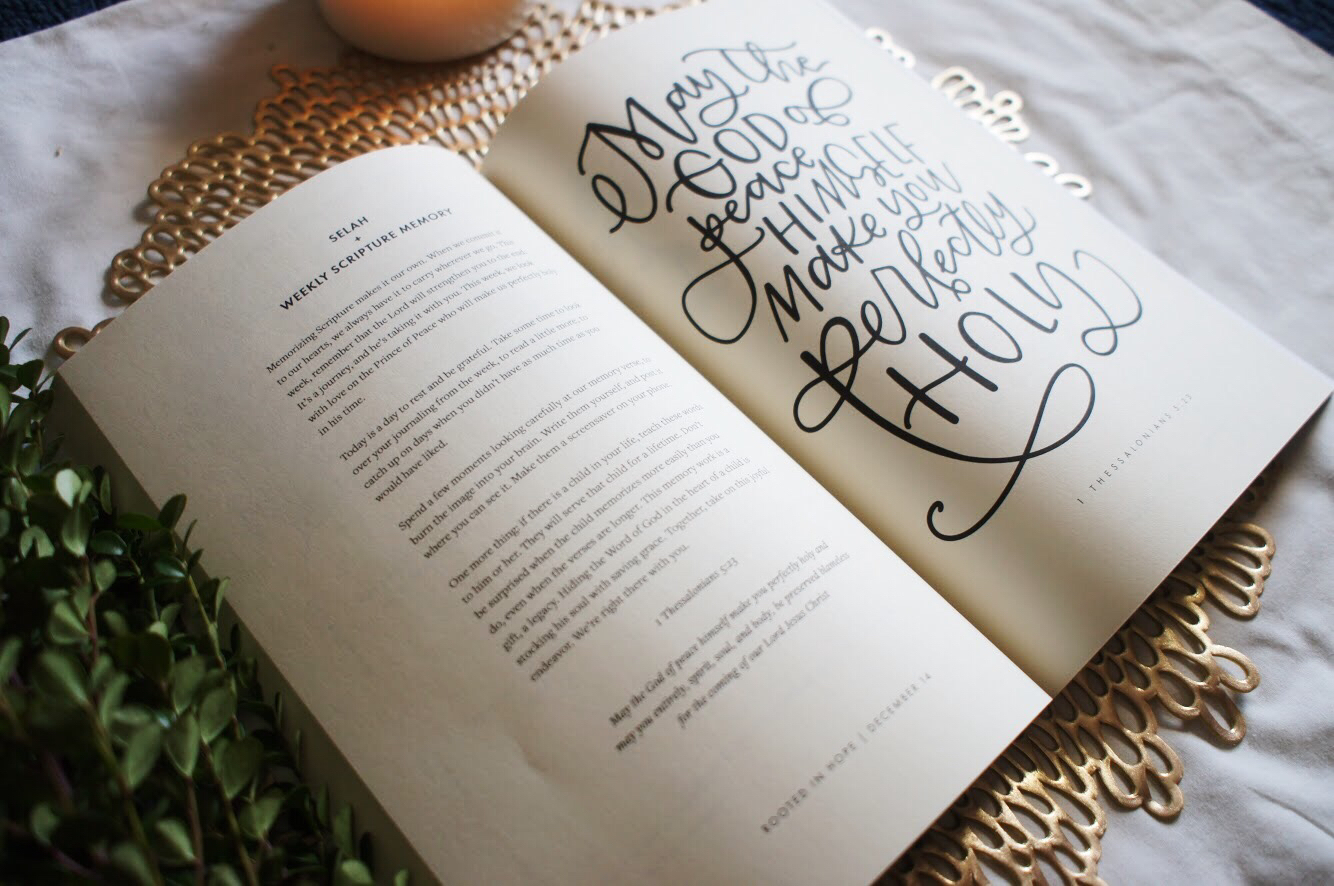 SELAH
+
WEEKLY SCRIPTURE MEMORY
Memorizing Scripture makes it our own. When we commit it
to our hearts, we always have it to carry wherever we go. This
week, remember that the Lord will strengthen you to the end.
It's a journey, and he's taking it with you. This week, we look
with love on the Prince of Peace who will make us perfectly holy
in his time.
Today is a day to rest and be grateful. Take some time to look
over your journaling from the week, to read a little more, to
catch up on days when you didn't have as much time as you
would have liked.
Spend a few moments looking carefully at our memory verse, to
burn the image into your brain. Write them yourself, and post it
where you can see it. Make them a screensaver on your phone.
One more thing: if there is a child in your life, teach these words
to him or her. They will serve that child for a lifetime. Don't
be surprised when the child memorizes more easily than you
do, even when the verses are longer. This memory work is a
gift, a legacy. Hiding the Word of God in the heart of a child is
stocking his soul with saving grace. Together, take on this joyful
endeavor. We're right there with you.
1 Thessalonians 5:23
May the God of peace himself make you perfectly holy and
may you entirely, spirit, soul, and body, be preserved blameless
for the coming of our Lord Jesus Christ
ROOTED IN HOPE | DECEMBER 14
May the
GOD of
peace
HIMSELF
Make you
perfectly
HOLY
1 THESSALONIANS 5:23